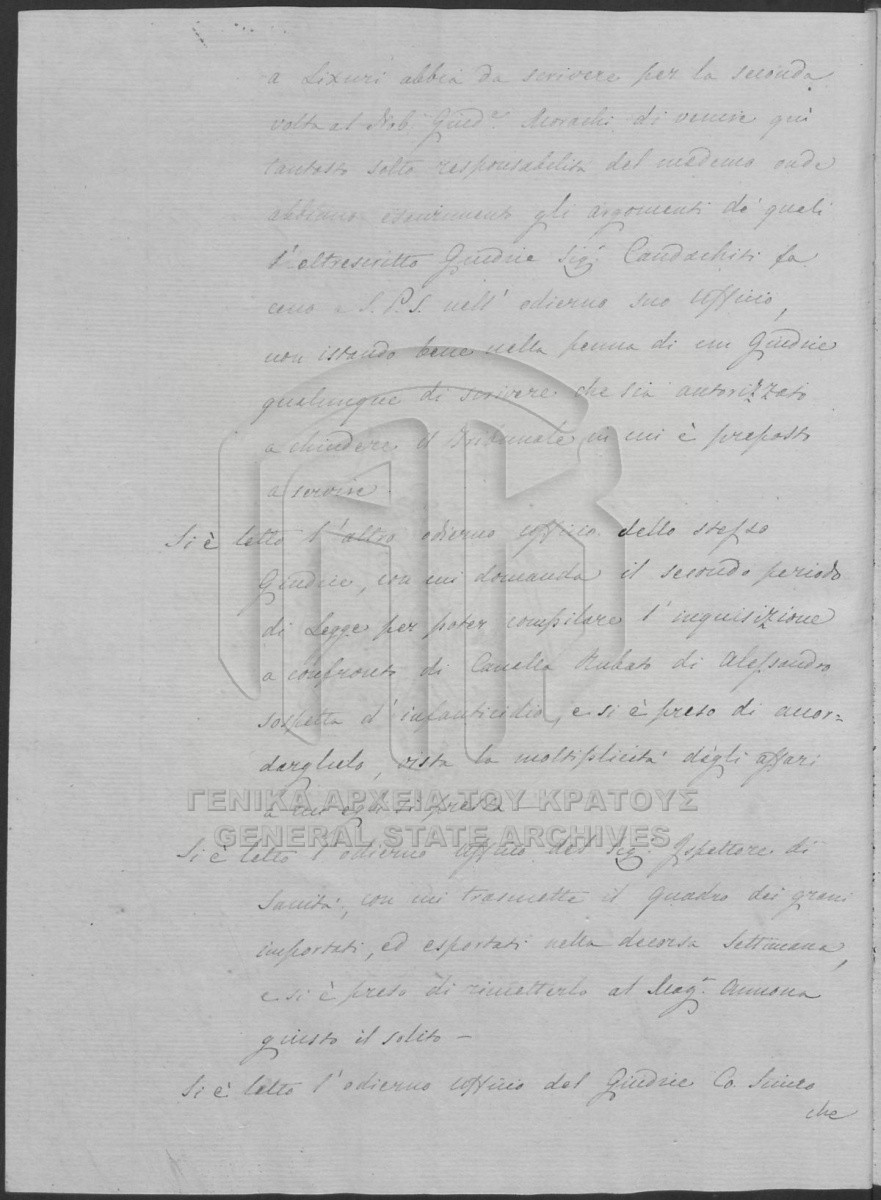 a Lixuri abbia da scrivere per la seconda
volta al Nob. Giud.e Morachi di venire quì
tantosto sotto responsabilità del medemo onde
abbiano esaurimento gli argomenti de' quali
l'oltrescritto Giudice Sig.r Candachiti fa
ceno a S. P. S. nell' odierno suo Officio,
non istando bene nella penna di un Giudice
qualunque di scrivere che sia autorizzato
a chiudere il Tribunale in cui è preposto
a servire.
Si è letto l'altro odierno officio dello stesso
Giudice, con cui domanda il secondo periodo
di Legge per poter compilare l'inquisizione
a confronto di Canella Rubato di Alessandro
sospetta d'infanticidio, e si è preso di accor-
darghelo, vista la moltiplicità degli affari
a cui egli si presta
ΓΕΝΙΚΑ ΑΡΧΕΙΑ ΤΟΥ ΚΡΑΤΟΥΣ
GENERAL STATE ARCHIVES
Si è letto l'odierno officio del Sig.r Ispettore di
Sanità, con cui trasmette il quadro dei grani
importati, ed esportati nella decorsa Settimana,
e si è preso di rimetterlo al Mag.to Annona
giusto il solito —
Si è letto l'odierno officio del Giudice Co.
che